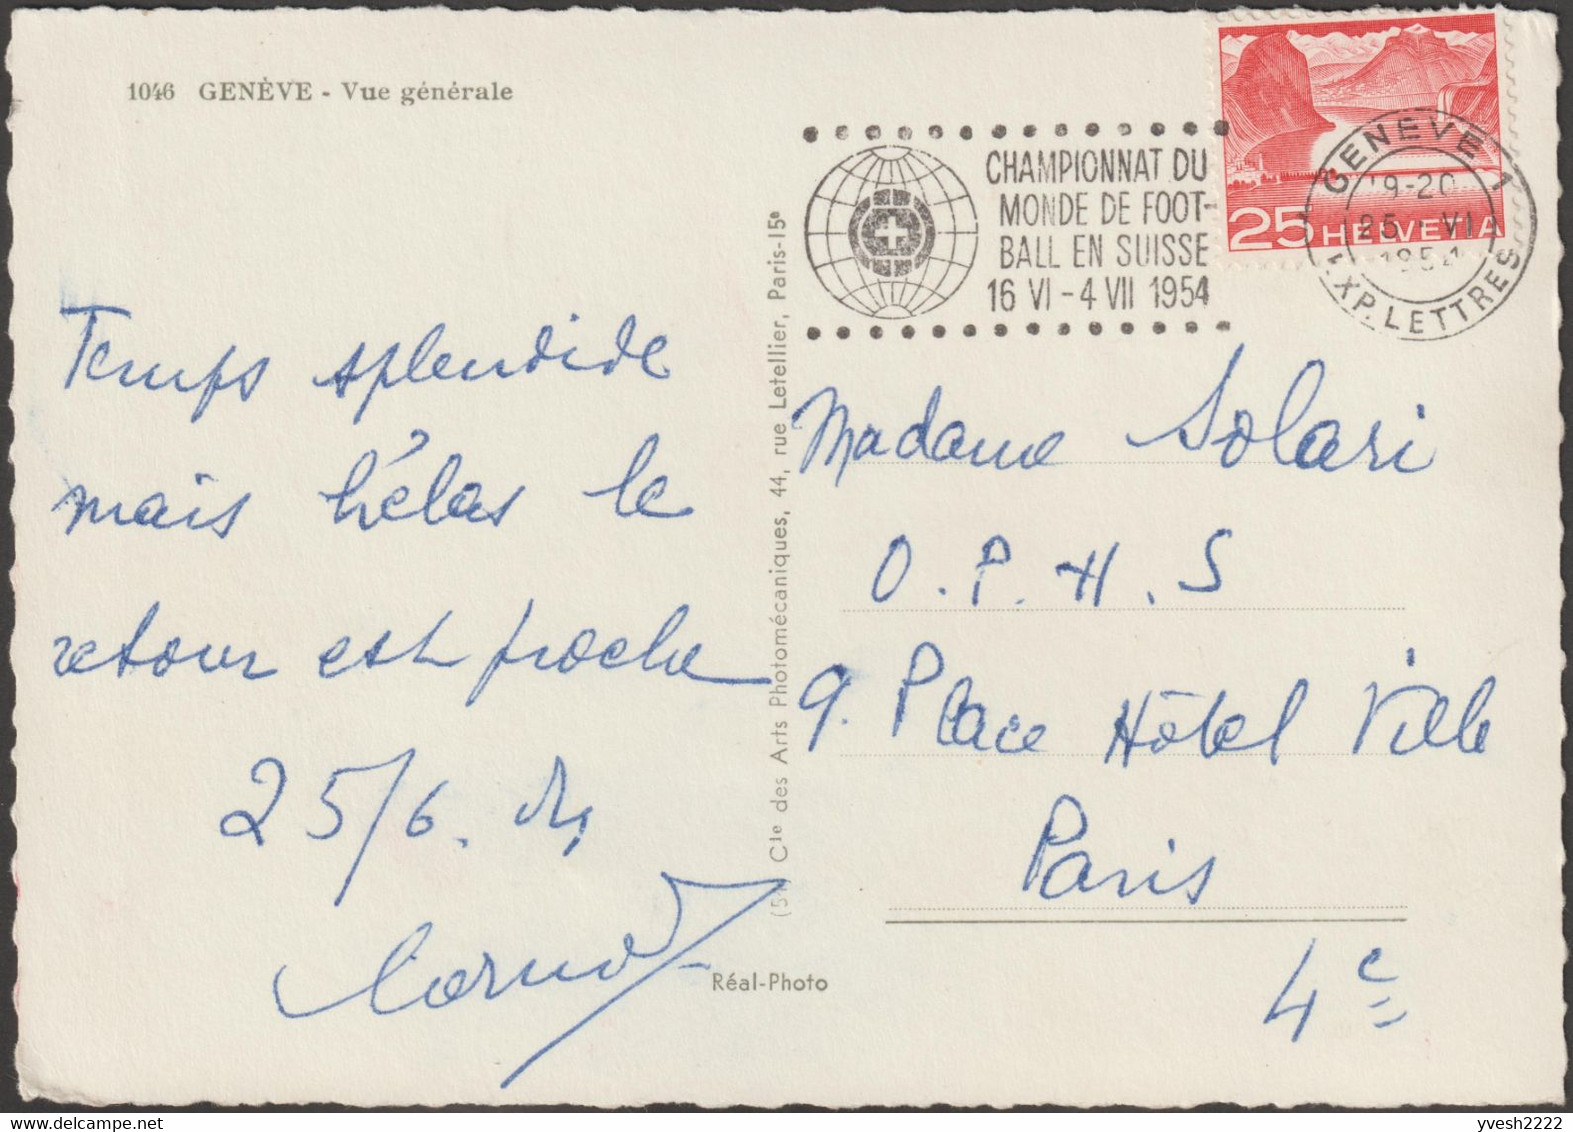 1046 GENÈVE - Vue générale
CHAMPIONNAT DU
MONDE DE FOOT-
BALL EN SUISSE
16 VI - 4 VII 1954
25 HELVETIA
GENEVE 1
19-20
25 · VI
1954
EXP. LETTRES
Temps splendide
mais hélas le
retour est proche
25/6. 54
Cie des Arts Photomécaniques, 44, rue Letellier, Paris-15e
Réal-Photo
Madame Solari
O.P.H.S
9. Place Hôtel Ville
Paris
4e
yvesh2222